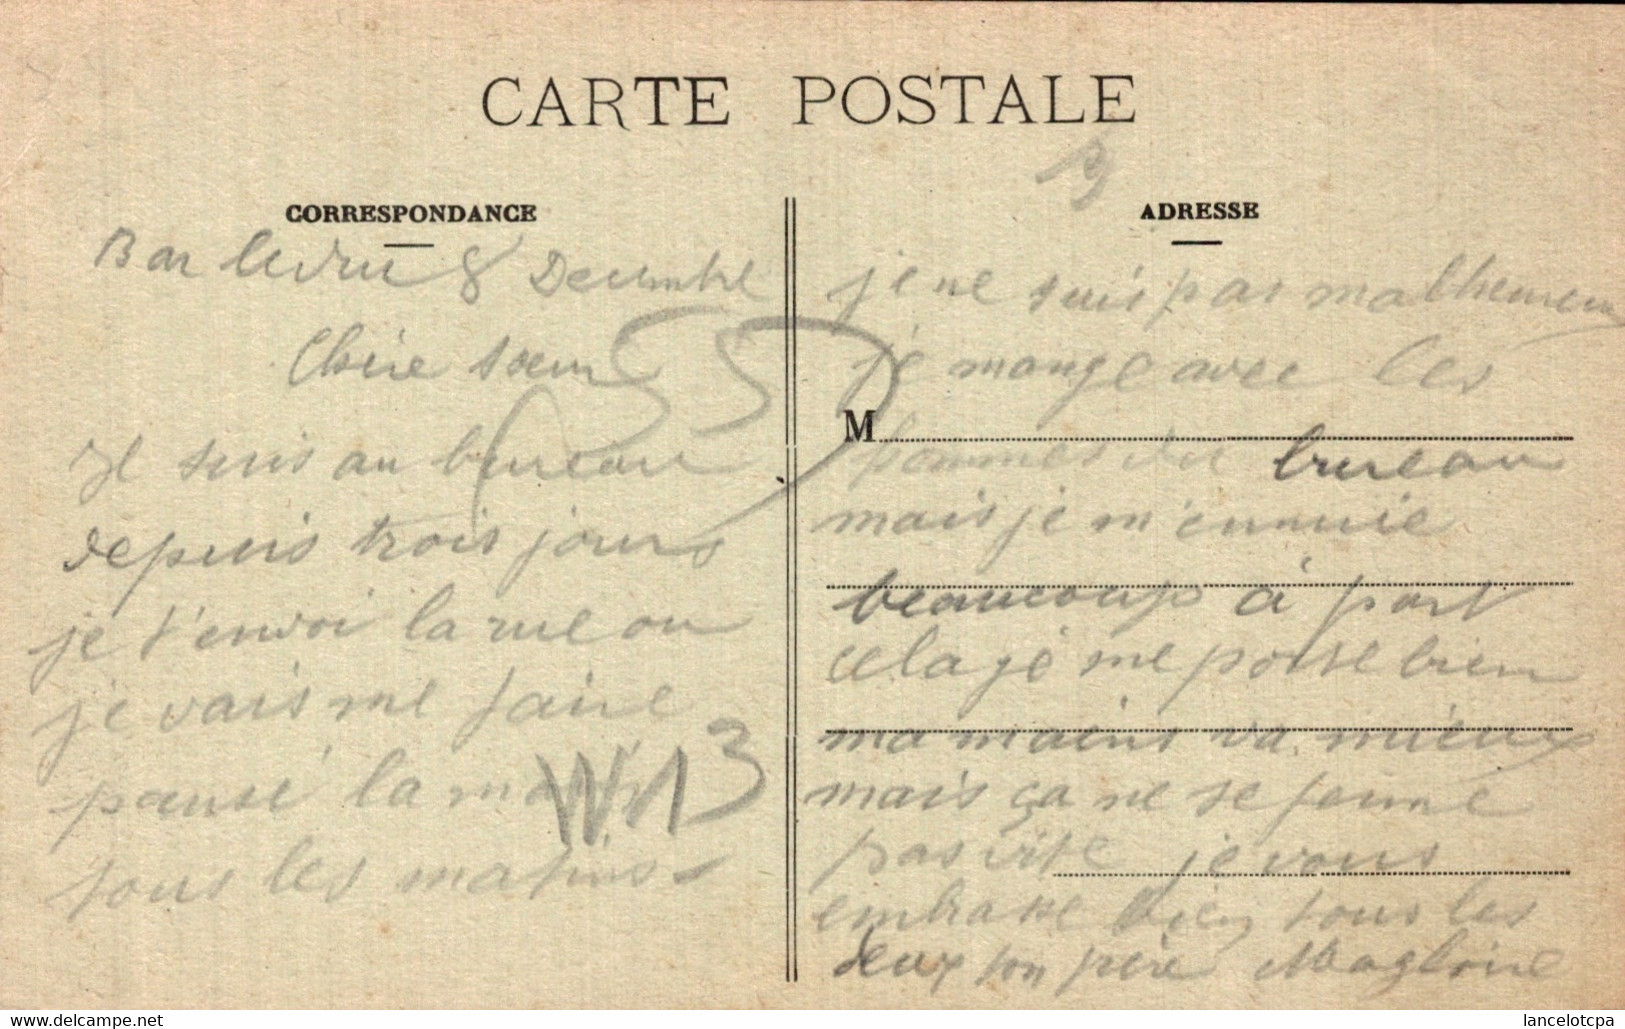 CARTE POSTALE
CORRESPONDANCE
Bar le duc 8 Decembre
Chère sœur
Je suis au bureau
depuis trois jours
je t'envoi la rue ou
je vais me faire
pansé la main
tous les matins
55
W13
ADRESSE
je ne suis pas malheureux
je mange avec les
M
hommes du bureau
mais je m'ennuie
beaucoup à part
cela je me porte bien
ma mains va mieux
mais ça ne se ferme
pas vite je vous
embrasse bien tous les
deux ton père Magloire
www.delcampe.net
lancelotcpa